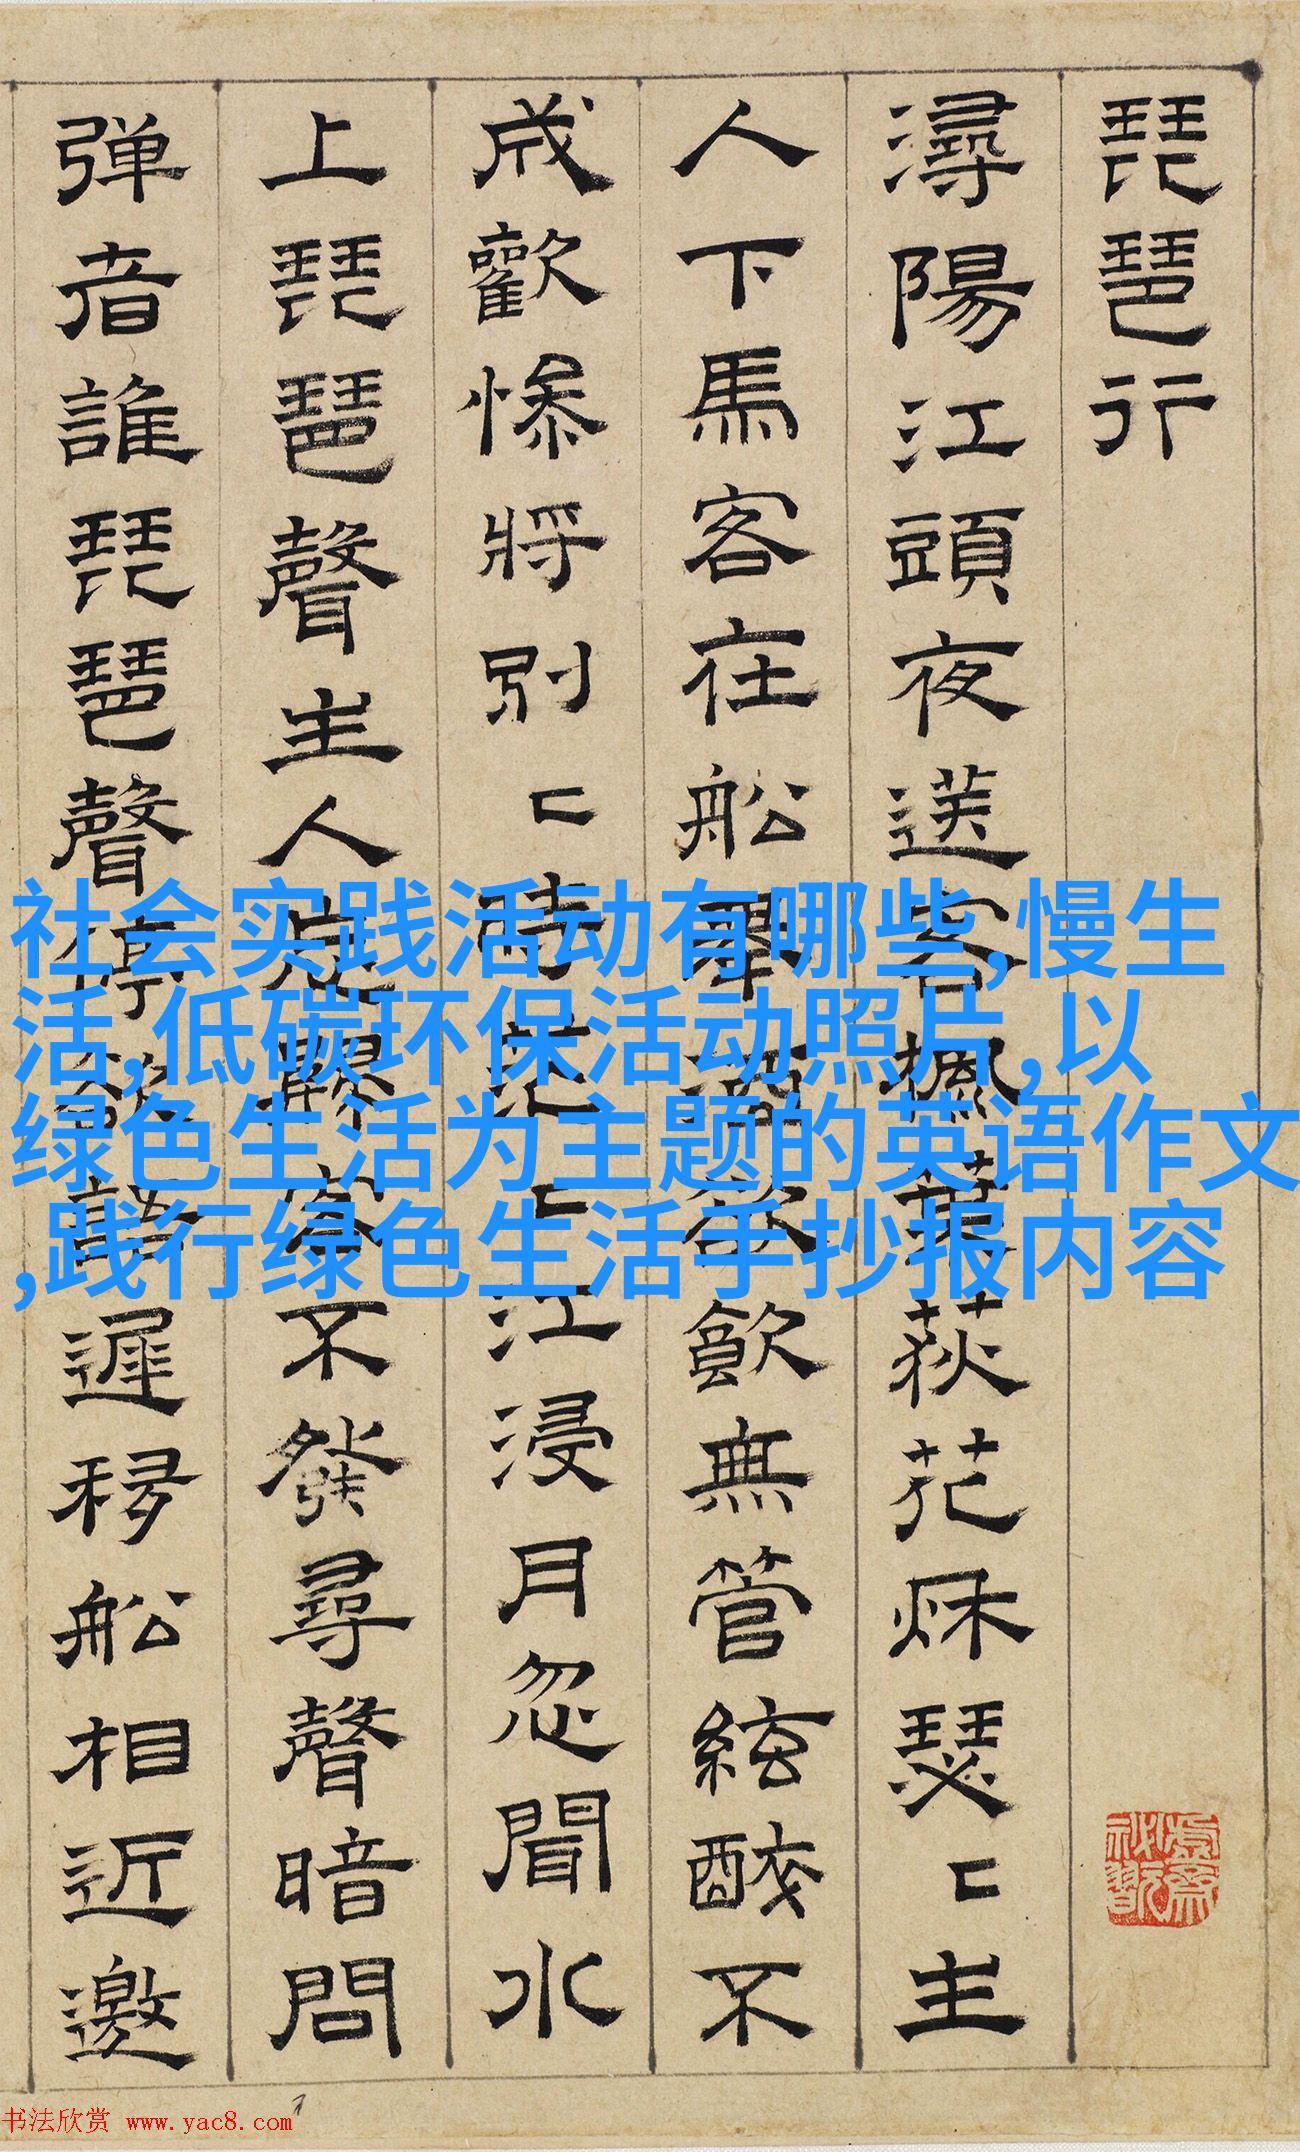 琵琶行
潯陽江頭夜送客楓葉荻花秌瑟〻主
人下馬客在船舉酒欲飲無管絃醉不
成歡慘將別〻時茫〻江浸月忽聞水
上琵琶聲主人忘歸客不發尋聲暗問
弹者誰琵琶聲停欲語遲移船相近邀
社会实践活动有哪些,慢生
活,低碳环保活动照片,以
绿色生活为主题的英语作文
,践行绿色生活手抄报内容
书法欣赏 www.yac8.com